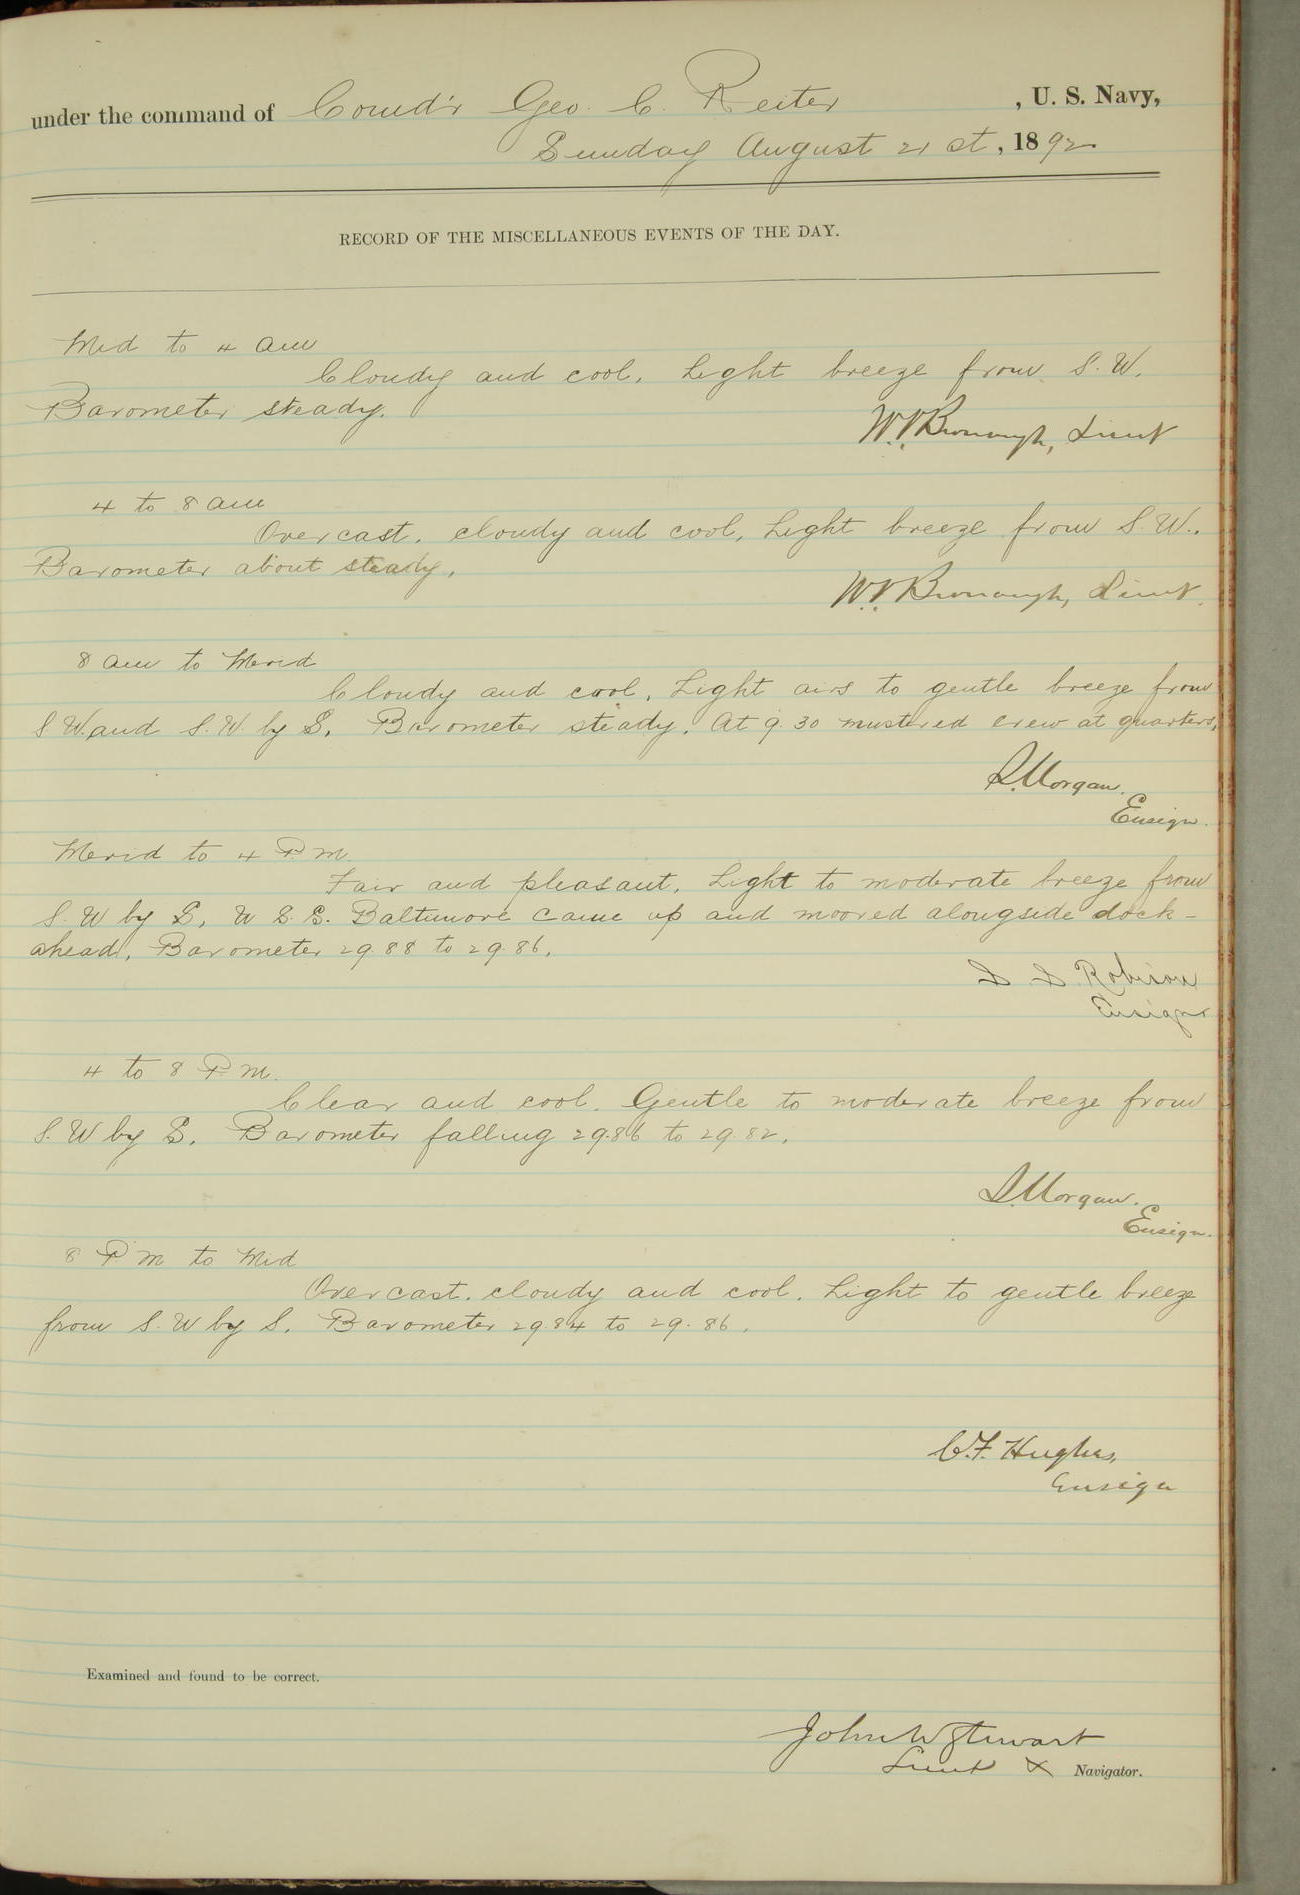 under the command of Comd'r Geo. C. Reiter, U. S. Navy,
Sunday August 21 st, 1892
RECORD OF THE MISCELLANEOUS EVENTS OF THE DAY.
Mid to 4 am
Cloudy and cool. Light breeze from S. W.
Barometer steady.
W.V. Bronaugh, Lieut
4 to 8 am
Overcast. cloudy and cool, Light breeze from S. W..
Barometer about steady.
W.V. Bronaugh, Lieut.
8 am to Merid
Cloudy and cool. Light airs to gentle breeze from
S W. and S. W. by S. Barometer steady. At 9.30 mustered crew at quarters.
Morgan.
Ensign.
Merid to 4 P. M.
Fair and pleasant. Light to moderate breeze from
S. W by S, U S. S. Baltimore came up and moored alongside dock-
ahead. Barometer 29 88 to 29.86.
S. S. Robison
Ensign
4 to 8 P. M.
Clear and cool. Gentle to moderate breeze from
S. W by S. Barometer falling 29.86 to 29.82.
Morgan.
Ensign.
8 P M to Mid
Overcast. cloudy and cool. Light to gentle breeze
from S. W by S. Barometer 29.84 to 29.86.
C. F. Hughes,
Ensign
Examined and found to be correct.
John W Stewart
Lieut & Navigator.